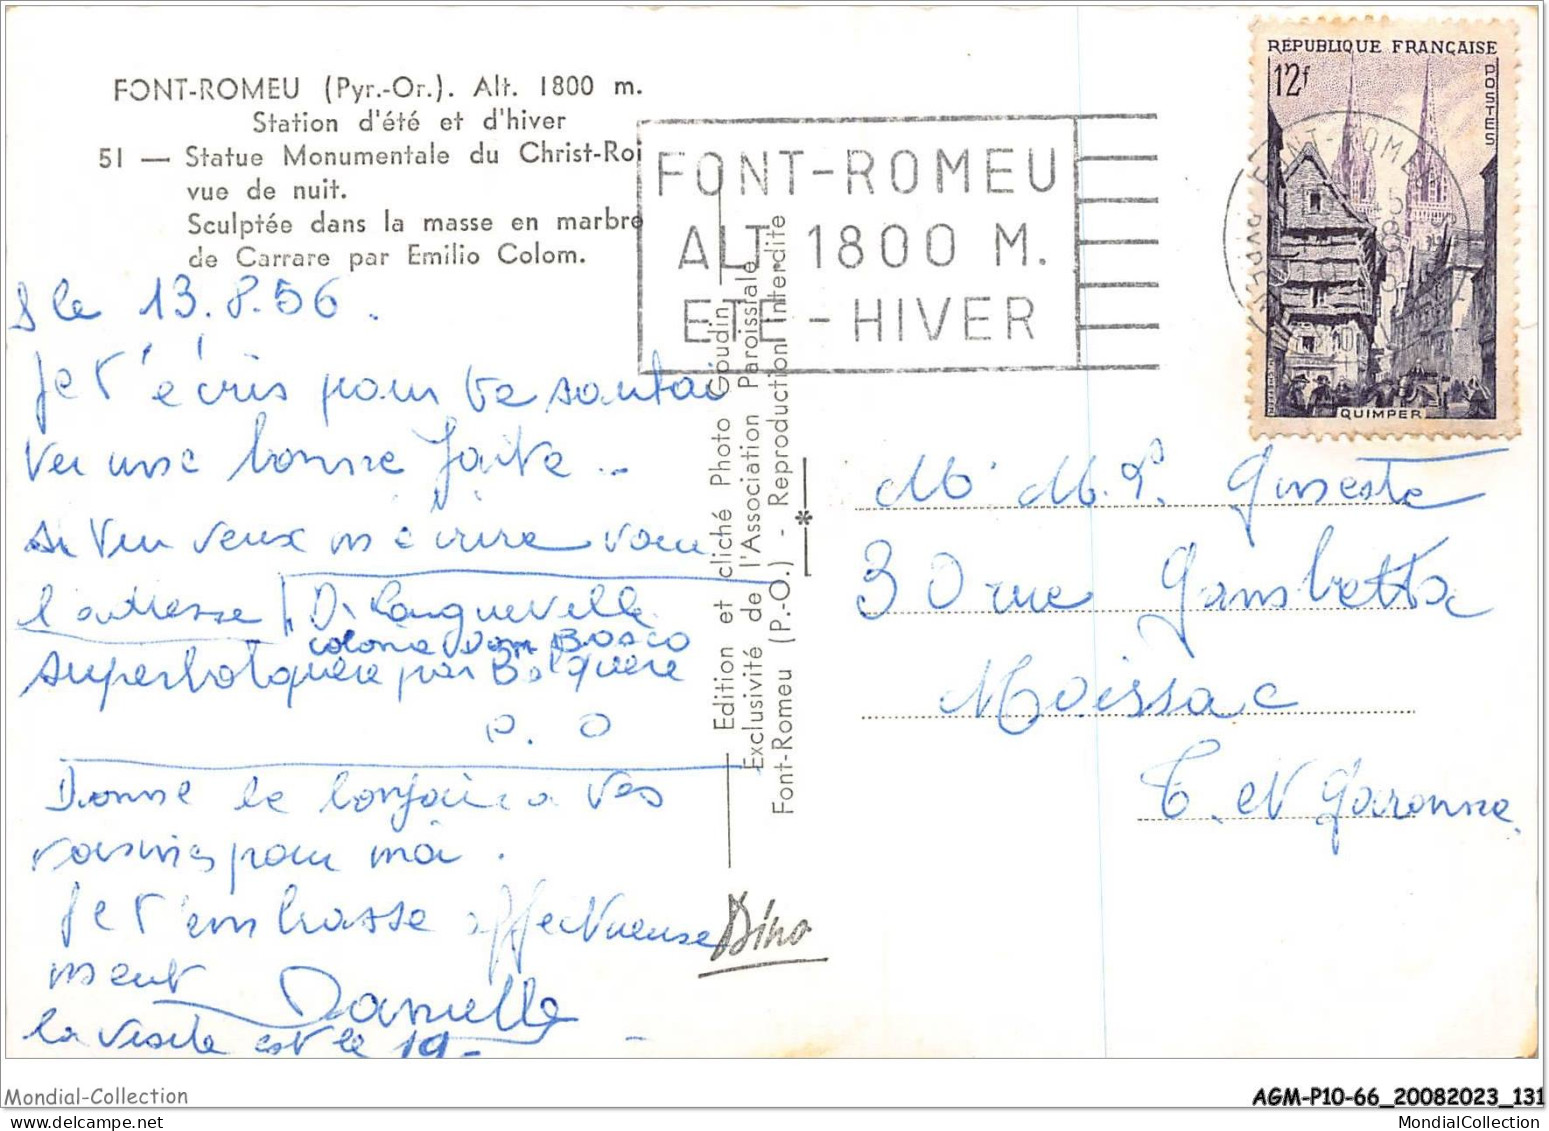 FONT-ROMEU (Pyr.-Or.). Alt. 1800 m.
Station d'été et d'hiver
51 — Statue Monumentale du Christ-Roi
vue de nuit.
Sculptée dans la masse en marbre
de Carrare par Emilio Colom.
le 13.8.56.
Je t'écris pour te souhai
ter une bonne faite ..
si tu veux m'écrire voici
l'adresse D. Longueville
colonie Dom BOSCO
Superbolquère par Bolquère
P. O
Donne le bonjour a tes
voisines pour moi.
Je t'embrasse affectueuse
ment Danielle
la visite est le 19-
Dino
Edition et cliché Photo Goudin
Exclusivité de l'Association Paroissiale
Font-Romeu (P.-O.) - Reproduction Interdite
FONT-ROMEU
ALT. 1800 M.
ETE - HIVER
RÉPUBLIQUE FRANÇAISE
12f
POSTES
QUIMPER
FONT-ROMEU
M M.P. Gineste
30 rue Gambetta
Moissac
T. et Garonne.
Mondial-Collection
AGM-P10-66_20082023_131
MondialCollection.com